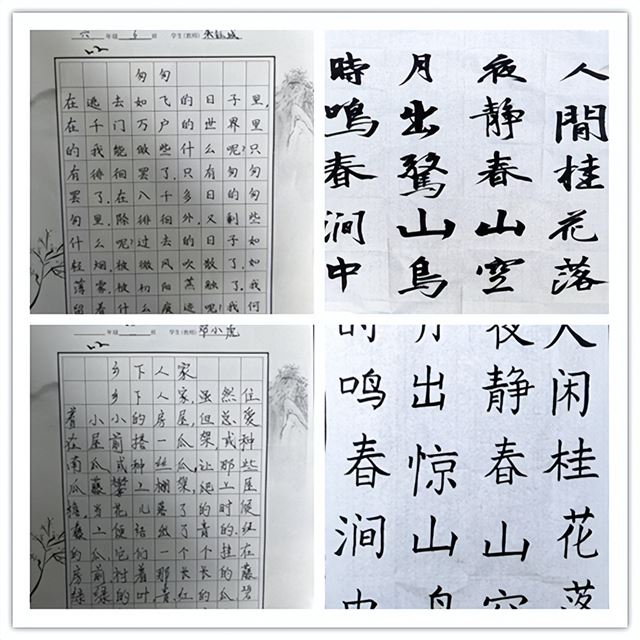 六 年级 6 班 学生(教师)
匆匆
在逃去如飞的日子里,
在千门万户的世界里
的我能做些什么呢?只
有徘徊罢了,只有匆匆
罢了,在八千多日的匆
匆里,除徘徊外,又剩些
什么呢?过去的日子如
轻烟,被微风吹散了,如
薄雾,被初阳蒸融了,我
留着什么痕迹呢?我何
人閒桂花落
夜静春山空
月出驚山鳥
時鳴春澗中
年级 班 学生(教师) 邓小虎
乡下人家
乡下人家虽然住
着小小的房屋,但总爱
在屋前搭一瓜架,或种
南瓜,或种丝瓜,让那些
瓜藤攀上棚架,爬上屋
檐,当花儿落了的时候
藤上便结出了青的、红
的瓜,它们一个个挂在
房前,衬着那长长的藤
绿绿的叶,青、红的瓜,碧
人闲桂花落
夜静春山空
月出惊山鸟
时鸣春涧中